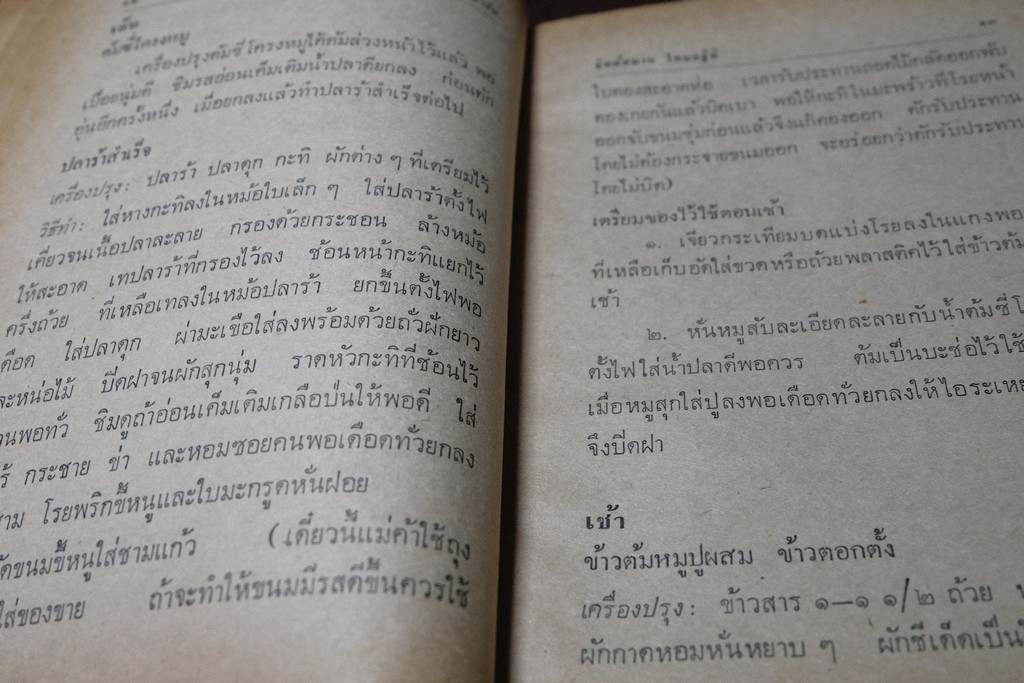 เย็น
ต้มซี่โครงหมู
เครื่องปรุงต้มซี่โครงหมูได้ต้มล่วงหน้าไว้แล้ว พอ
เปื่อยนุ่มดี ชิมรสอ่อนเค็มเติมน้ำปลาดียกลง ก่อนตัก
อุ่นอีกครั้งหนึ่ง เมื่อยกลงแล้วทำปลาร้าสำเร็จต่อไป
ปลาร้าสำเร็จ
เครื่องปรุง: ปลาร้า ปลาดุก กะทิ ผักต่าง ๆ ที่เตรียมไว้
วิธีทำ: ใส่หางกะทิลงในหม้อใบเล็ก ๆ ใส่ปลาร้าตั้งไฟ
เคี่ยวจนเนื้อปลาละลาย กรองด้วยกระชอน ล้างหม้อ
ให้สะอาด เทปลาร้าที่กรองไว้ลง ช้อนหน้ากะทิแยกไว้
ครึ่งถ้วย ที่เหลือเทลงในหม้อปลาร้า ยกขึ้นตั้งไฟพอ
ดือด ใส่ปลาดุก ผ่ามะเขือใส่ลงพร้อมด้วยถั่วฝักยาว
ละหน่อไม้ ปิดฝาจนผักสุกนุ่ม ราดหัวกะทิที่ช้อนไว้
นพอทั่ว ชิมดูถ้าอ่อนเค็มเติมเกลือป่นให้พอดี ใส่
ร้ กระชาย ข่า และหอมซอยคนพอเดือดทั่วยกลง
ชาม โรยพริกขี้หนูและใบมะกรูดหั่นฝอย
ขนมขี้หนูใส่ชามแก้ว (เดี๋ยวนี้แม่ค้าใช้ถุง
ใส่ของขาย ถ้าจะทำให้ขนมมีรสดีขึ้นควรใช้
๒๓
จิตต์สมาน โกมลฐิติ
ใบตองสะอาดห่อ เวลารับประทานถอดไม้กลัดออกพับ
ตองเกยกันแล้วบิดเบา พอให้กะทิในมะพร้าวที่โรยหน้า
ออกจับขนมชุ่มก่อนแล้วจึงแก้ตองออก ตักรับประทาน
โดยไม่ต้องกระจายขนมออก จะอร่อยกว่าตักรับประทาน
โดยไม่บิด)
เตรียมของไว้ใช้ตอนเช้า
๑. เจียวกระเทียมบดแบ่งโรยลงในแกงพอ
ที่เหลือเก็บอัดใส่ขวดหรือถ้วยพลาสติคไว้ใส่ข้าวต้ม
เช้า
๒. หั่นหมูสับละเอียดละลายกับน้ำต้มซี่โ
ตั้งไฟใส่น้ำปลาดีพอควร ต้มเป็นบะช่อไว้ใช้
เมื่อหมูสุกใส่ปูลงพอเดือดทั่วยกลงให้ไอระเห
จึงปิดฝา
เช้า
ข้าวต้มหมูปูผสม ข้าวตอกตั้ง
เครื่องปรุง: ข้าวสาร ๑—๑ ๑/๒ ถ้วย
ผักกาดหอมหั่นหยาบ ๆ ผักชีเด็ดเป็น